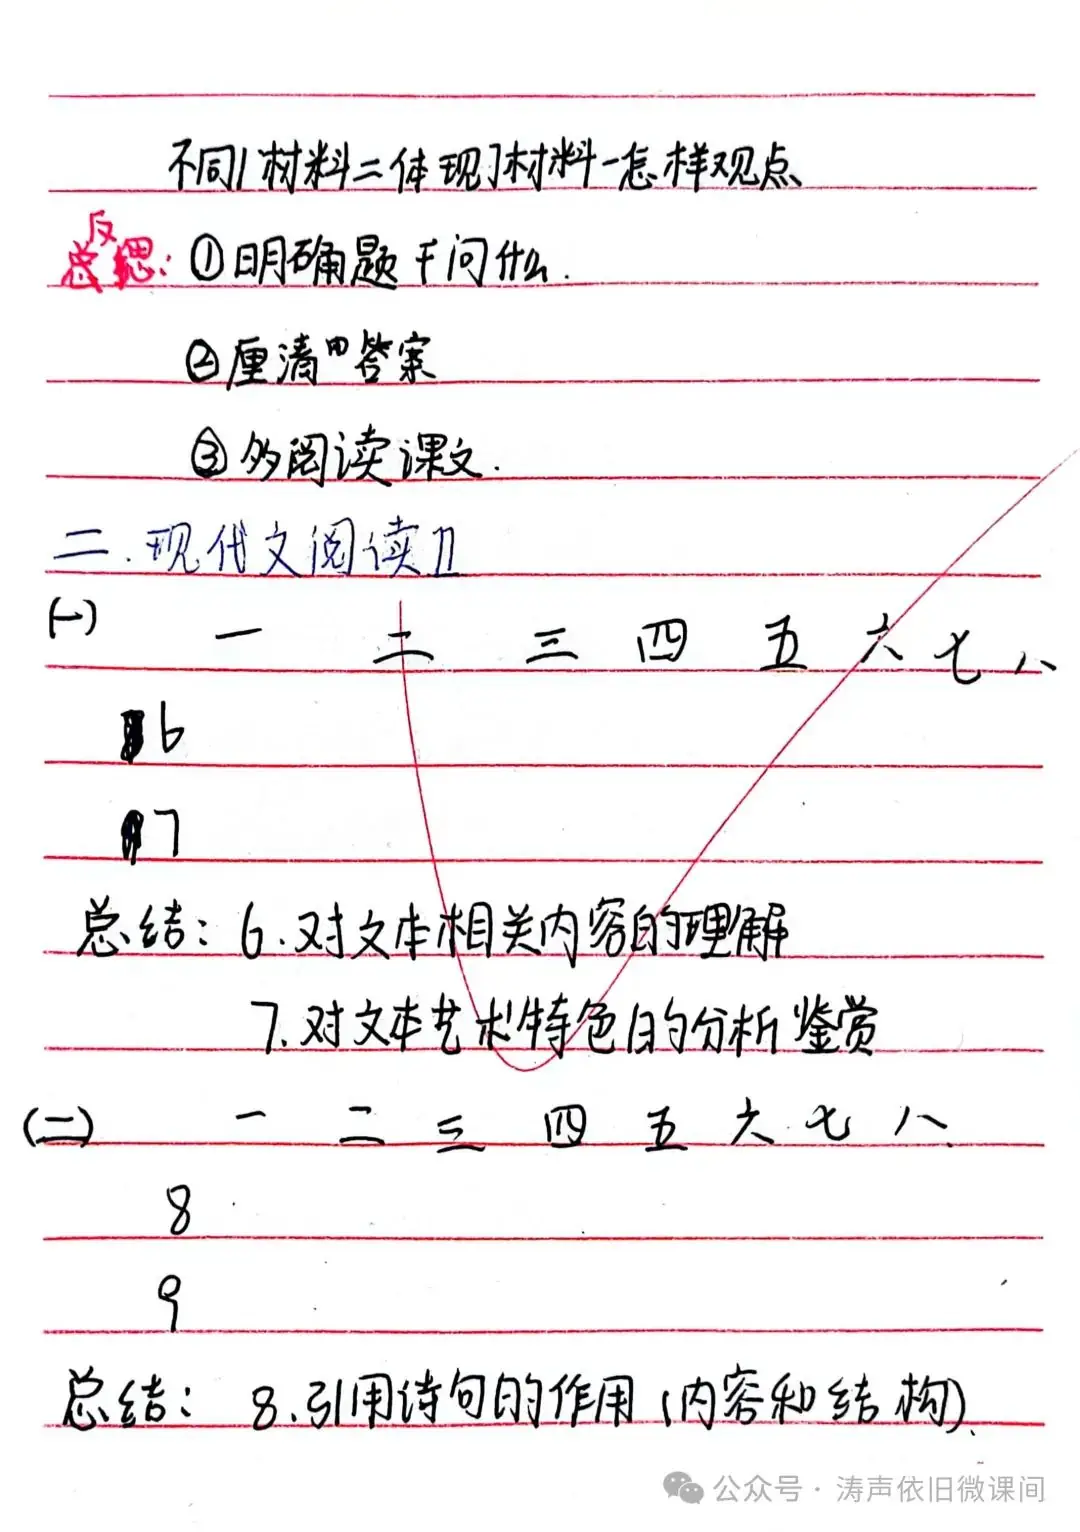 不同材料二体现了材料一怎样观点
反思：①明确题干问什么.
②厘清答案
③多阅读课文.
二.现代文阅读Ⅱ
(一) 一 二 三 四 五 六 七 八
6
7
总结：6.对文本相关内容的理解
7.对文本艺术特色的分析鉴赏
(二) 一 二 三 四 五 六 七 八
8
9
总结：8.引用诗句的作用(内容和结构).
公众号·涛声依旧微课间